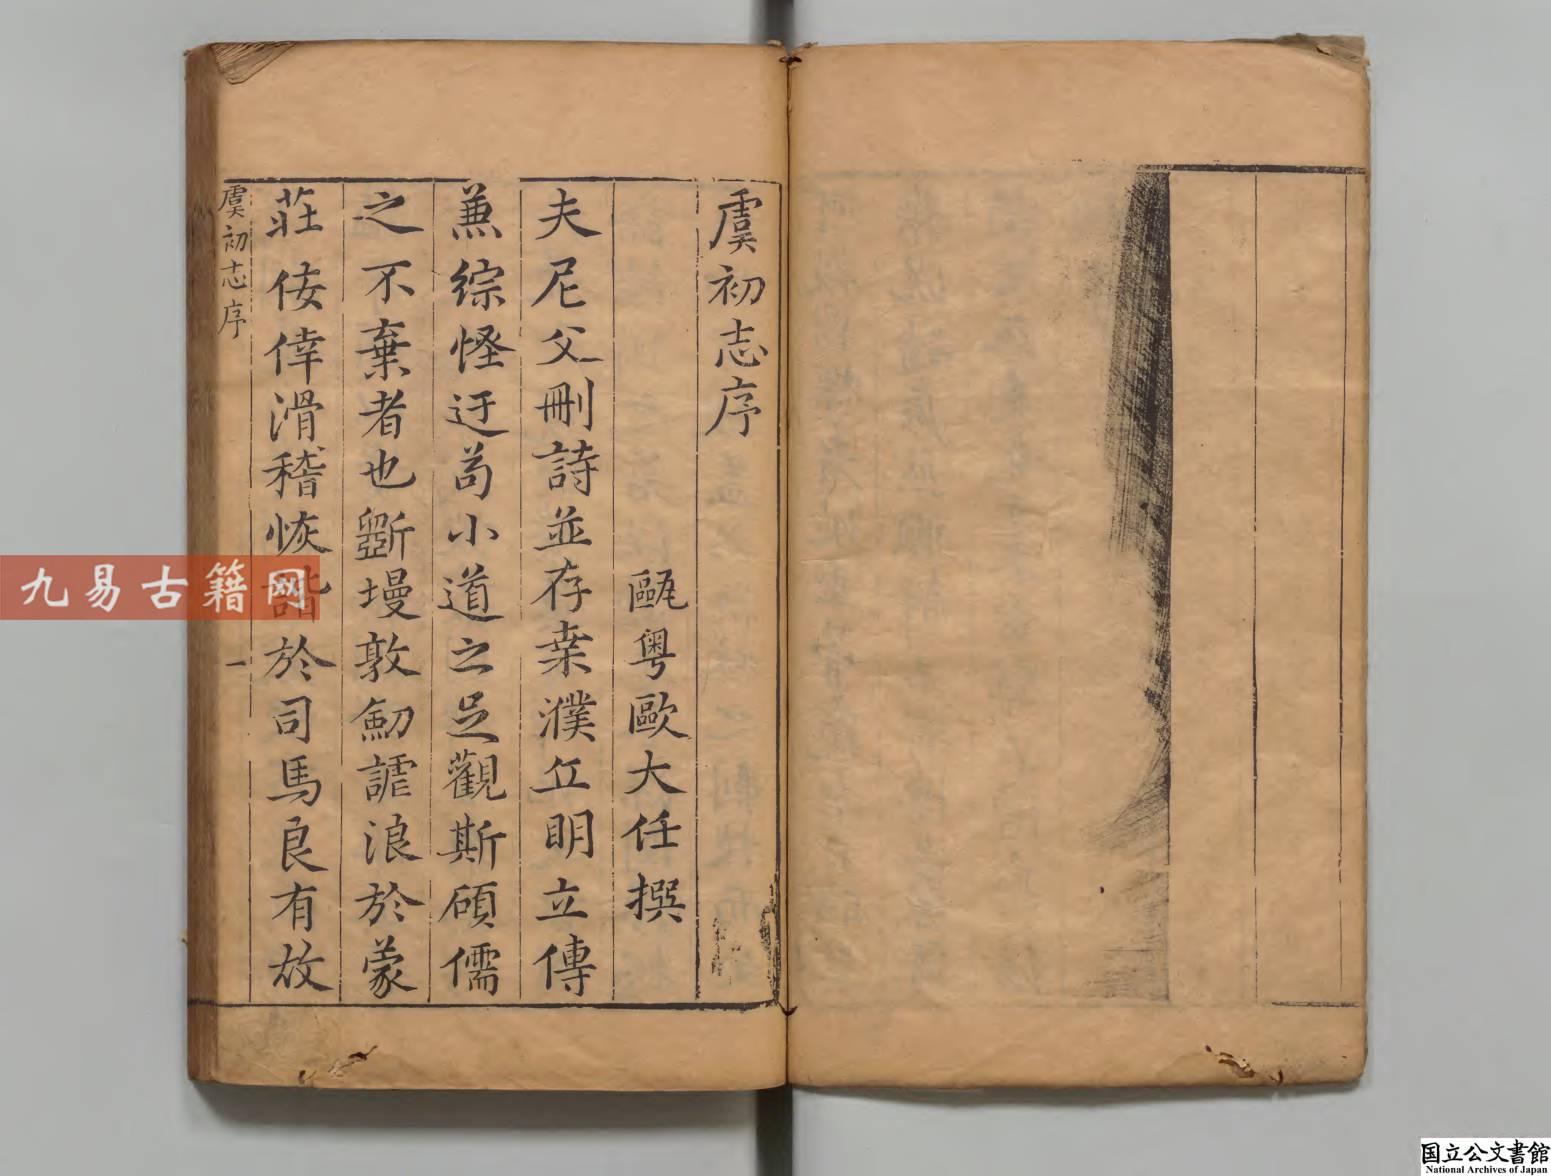 虞初志序
甌粤歐大任撰
夫尼父刪詩並存桒濮丘明立傳
兼綜恠迂苟小道之足觀斯碩儒
之不棄者也斵墁敦劒謔浪於蒙
莊侫倖滑稽恢諧於司馬良有故
虞初志序
一
九易古籍网
国立公文書館
National Archives of Japan